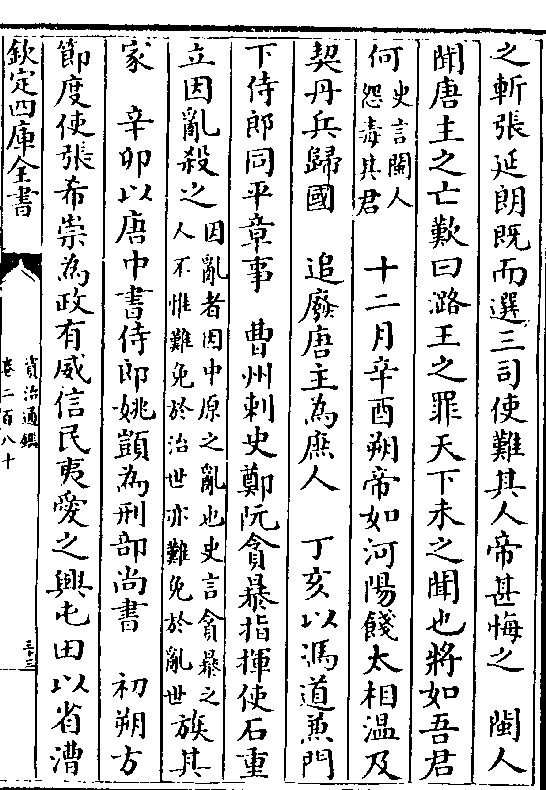 之斬張延朗既而選三司使難其人帝甚悔之　閩人
聞唐主之亡歎曰潞王之罪天下未之聞也將如吾君
何史言閩人怨毒其君　十二月辛酉朔帝如河陽餞太相温及
契丹兵歸國　追廢唐主為庶人　丁亥以馮道兼門
下侍郎同平章事　曹州刺史鄭阮貪暴指揮使石重
立因亂殺之因亂者因中原之亂也史言貪暴之人不惟難免於治世亦難免於亂世族其
家　辛卯以唐中書侍郎姚顗為刑部尚書　初朔方
節度使張希崇為政有威信民夷愛之興屯田以省漕
欽定四庫全書
資治通鑑
卷二百八十